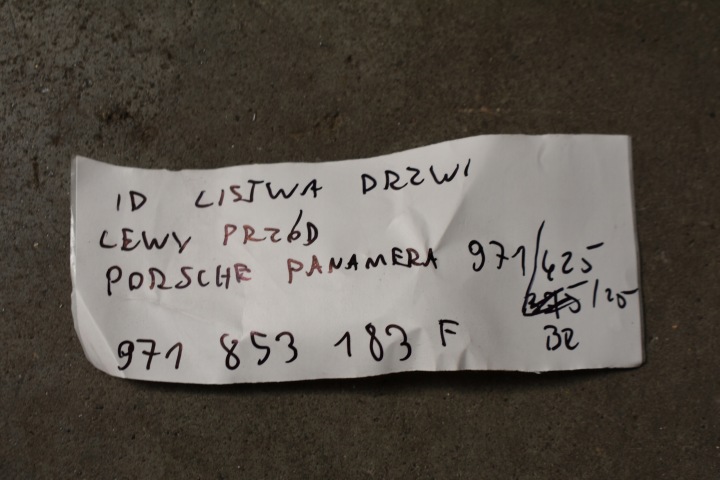 ID LISTWA DRZWI
LEWY PRZÓD
PORSCHE PANAMERA 971/425
/25
971 853 183 F
BR